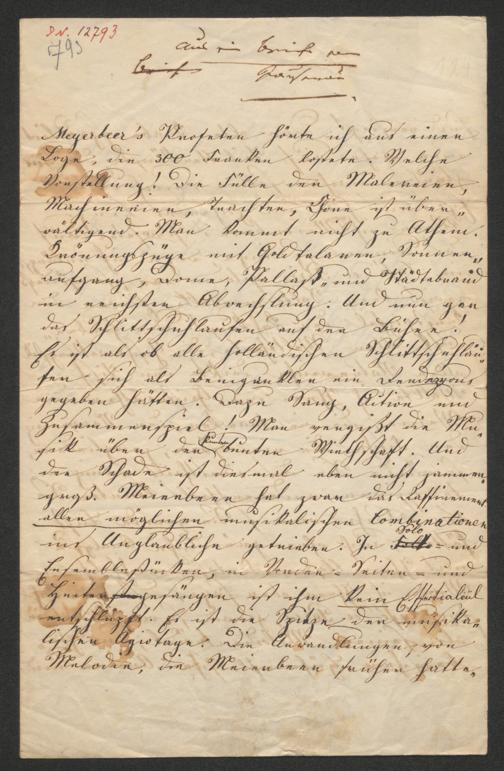 I.N. 12793
793
Aus ein Brief von
Brief
Meyerbeer's Profeten hörte ich aus einer
Loge, die 300 Franken kostete. Welche
Vorstellung! Die Fülle der Malereien,
Machinerien, Trachten, Chöre ist über„
wältigend. Man kommt nicht zu Athem.
Krönungszüge mit Goldtalaren, Sonnen„
aufgang, Dome, Pallast„ und Städtebrand
in reichster Abwechslung. Und nun gar
das Schlittschuhlaufen auf der Bühne!
Es ist als ob alle holländischen Schlittschuhläu„
fer sich als ein Rendezvous
gegeben hätten. Dazu Sang, Action und
Zusammenspiel! Man vergißt die Mu„
sik über der bunten Wirthschaft. Und
der Schade ist diesmal eben nicht jammer„
groß. Meierbeer hat zwar das Raffinement
aller möglichen musikalischen Combinationen
ins Unglaubliche getrieben. In Solo- und
Ensemblestücken, in Vorder- Seiten- und
Hintergesängen ist ihm kein
entschlüpft. Es ist die Spitze der musika„
lischen Agiotage. Die Anwandlungen von
Melodie, die Meierbeer früher hatte,